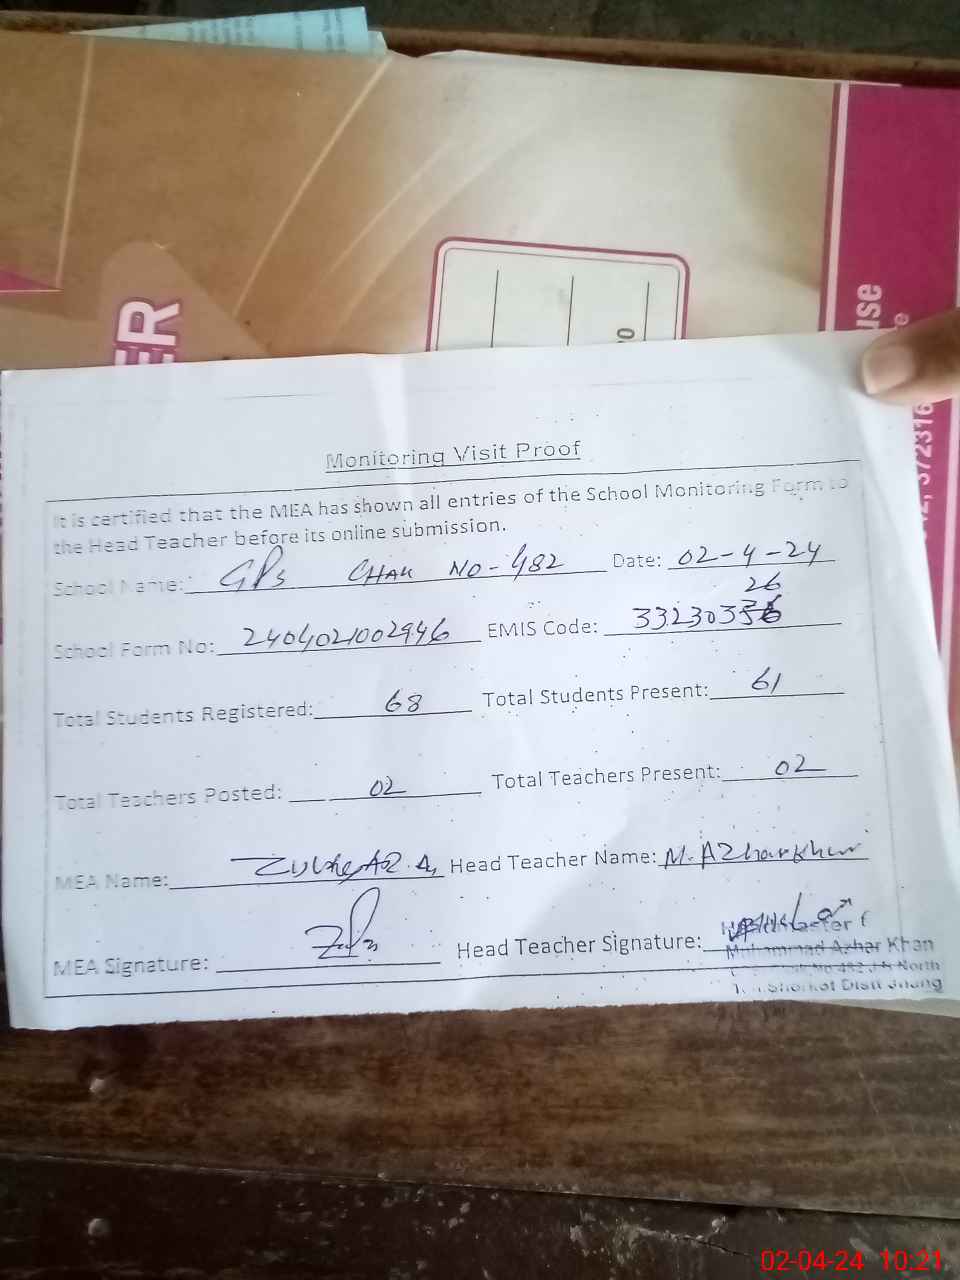 ER
use
372316
Monitoring Visit Proof
It is certified that the MEA has shown all entries of the School Monitoring Form to
the Head Teacher before its online submission.
School Name: GPS CHAK NO-482 Date: 02-4-24
26
School Form No: 2404021002946 EMIS Code: 332303
Total Students Registered: 68 Total Students Present: 61
Total Teachers Posted: 02 Total Teachers Present: 02
MEA Name: Head Teacher Name: M. Azhar Khan
MEA Signature: Head Teacher Signature:
Muhammad Azhar Khan
No 482 J.B North
Shorkot Distt Jhang
02-04-24 10:21